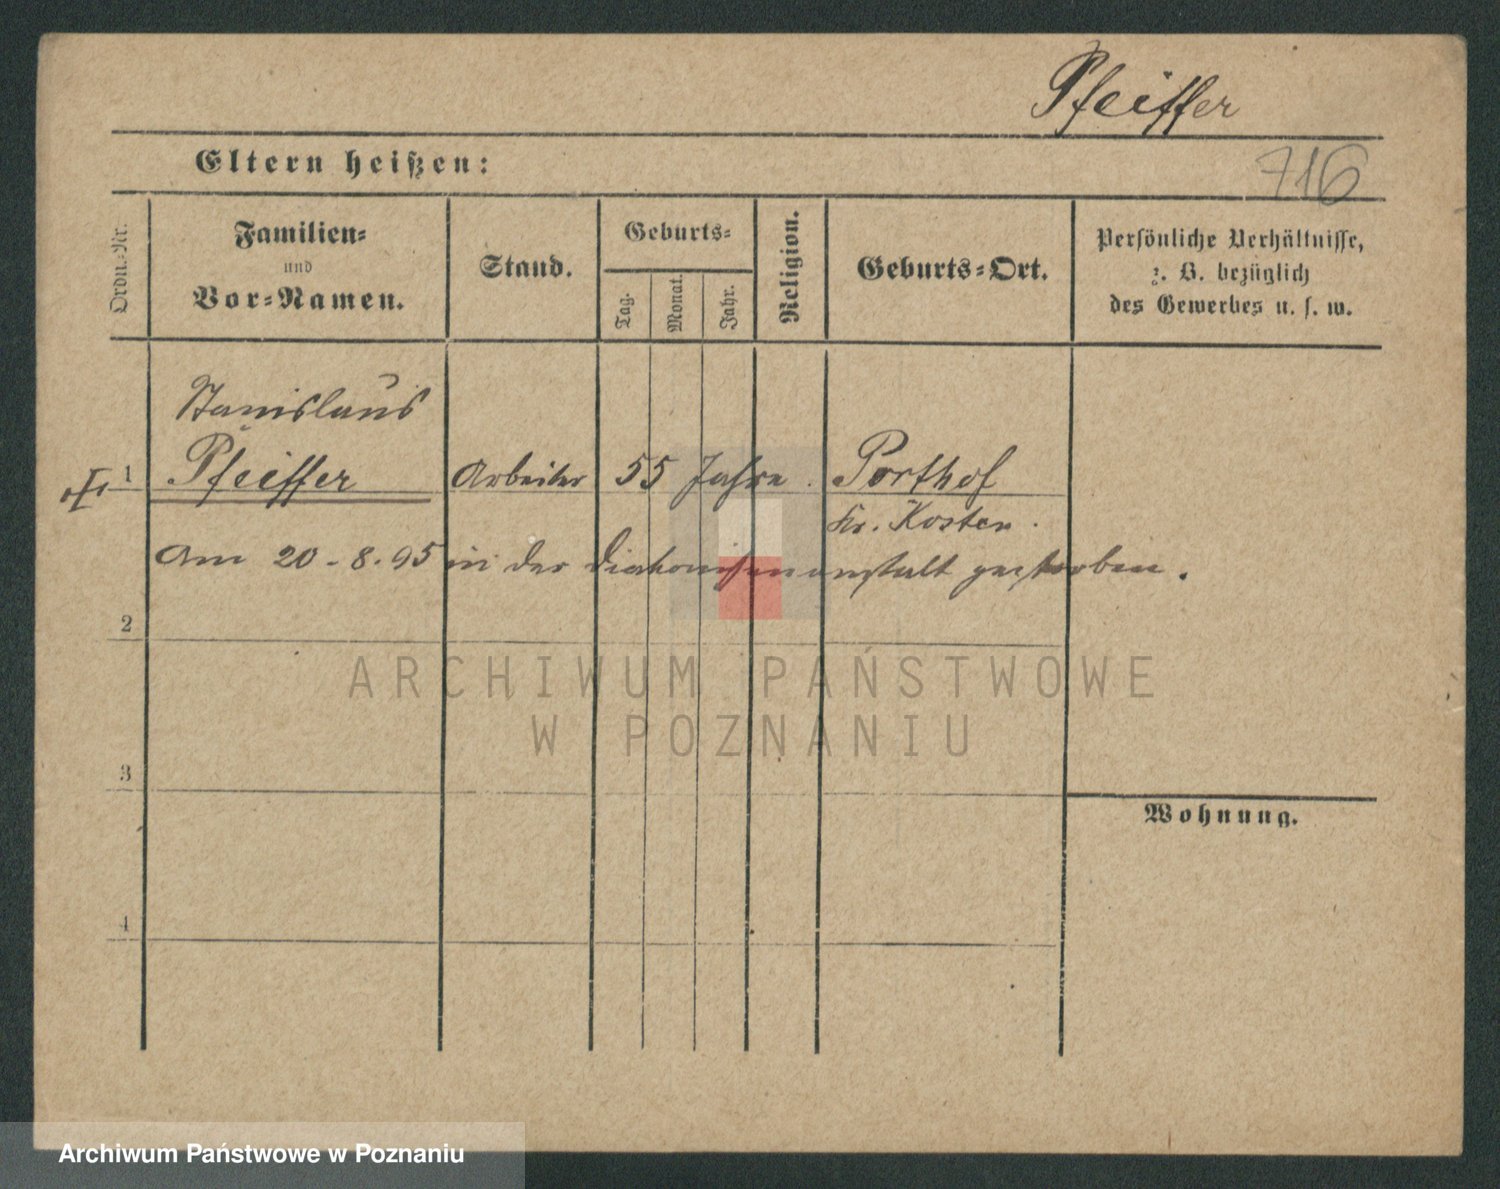 Pfeiffer
Eltern heißen:
716
Ordn.-Nr.
Familien-
und
Vor-Namen.
Stand.
Geburts-
Tag.
Monat.
Jahr.
Religion.
Geburts-Ort.
Persönliche Verhältnisse,
z. B. bezüglich
des Gewerbes u. s. w.
Stanislaus
1 Pfeiffer Arbeiter 55 Jahre. Porthof
Kr. Kosten.
Am 20-8.95 in der Diakonissenanstalt gestorben.
2
ARCHIWUM PAŃSTWOWE
W POZNANIU
3
Wohnung.
4
Archiwum Państwowe w Poznaniu